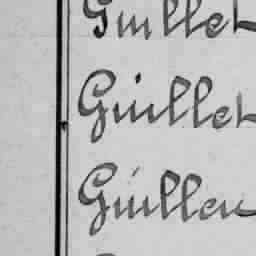 Guillet
Guillet
Guillen